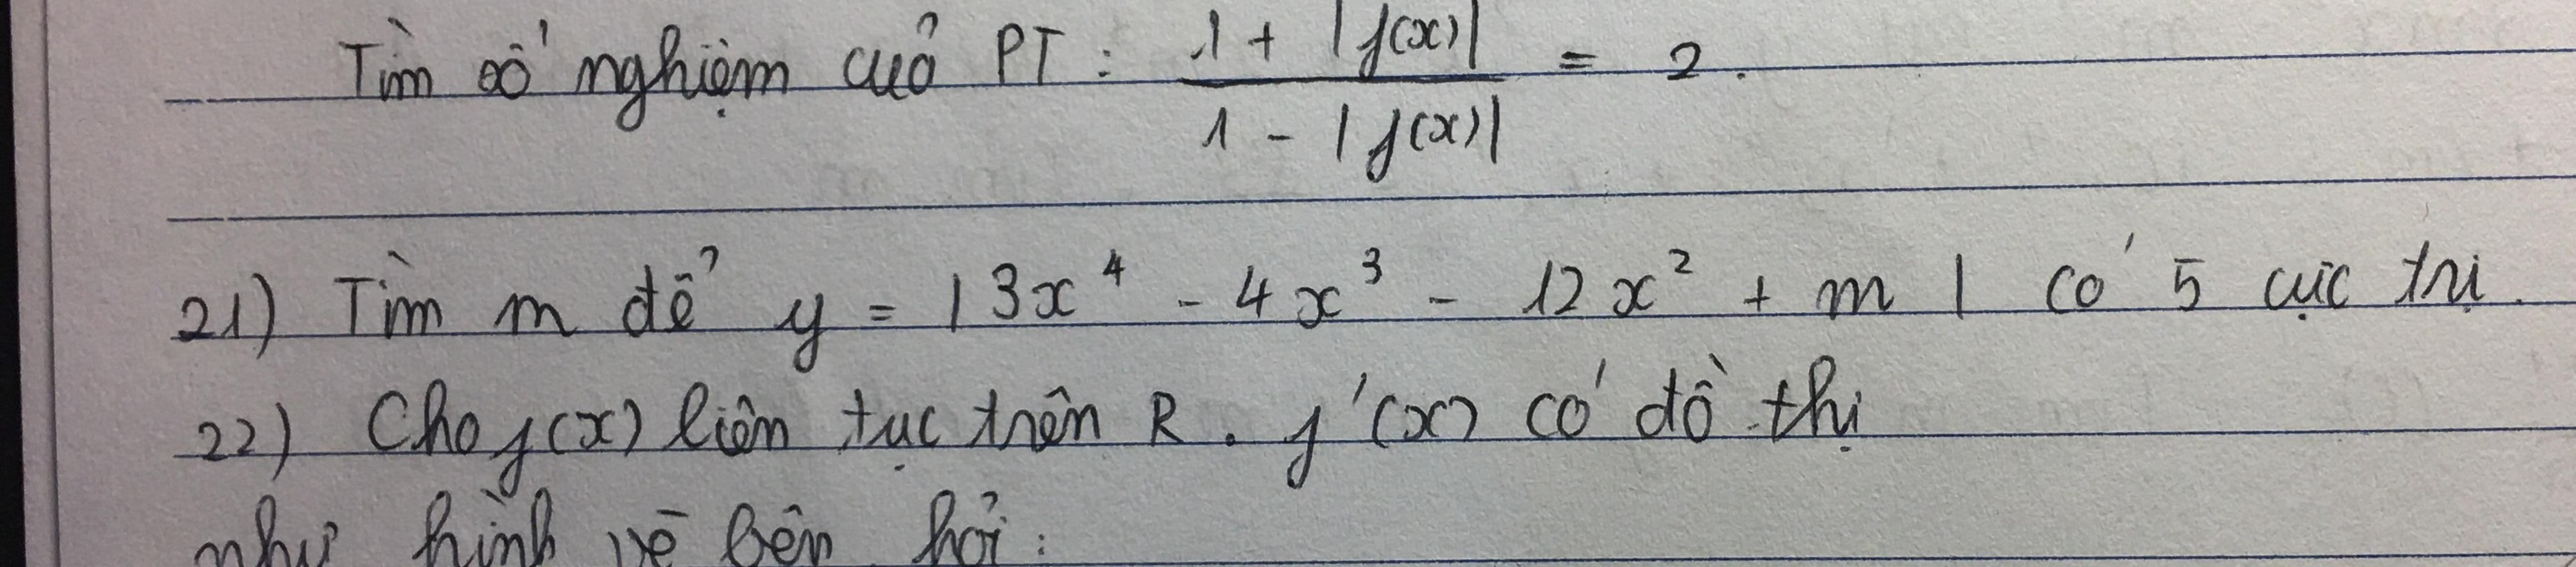 Tìm số nghiệm của PT : \frac{1 + |f(x)|}{1 - |f(x)|} = 2.
21) Tìm m để y = |3x^4 - 4x^3 - 12x^2 + m| có 5 cực trị.
22) Cho f(x) liên tục trên R. f'(x) có đồ thị
như hình vẽ bên hỏi: